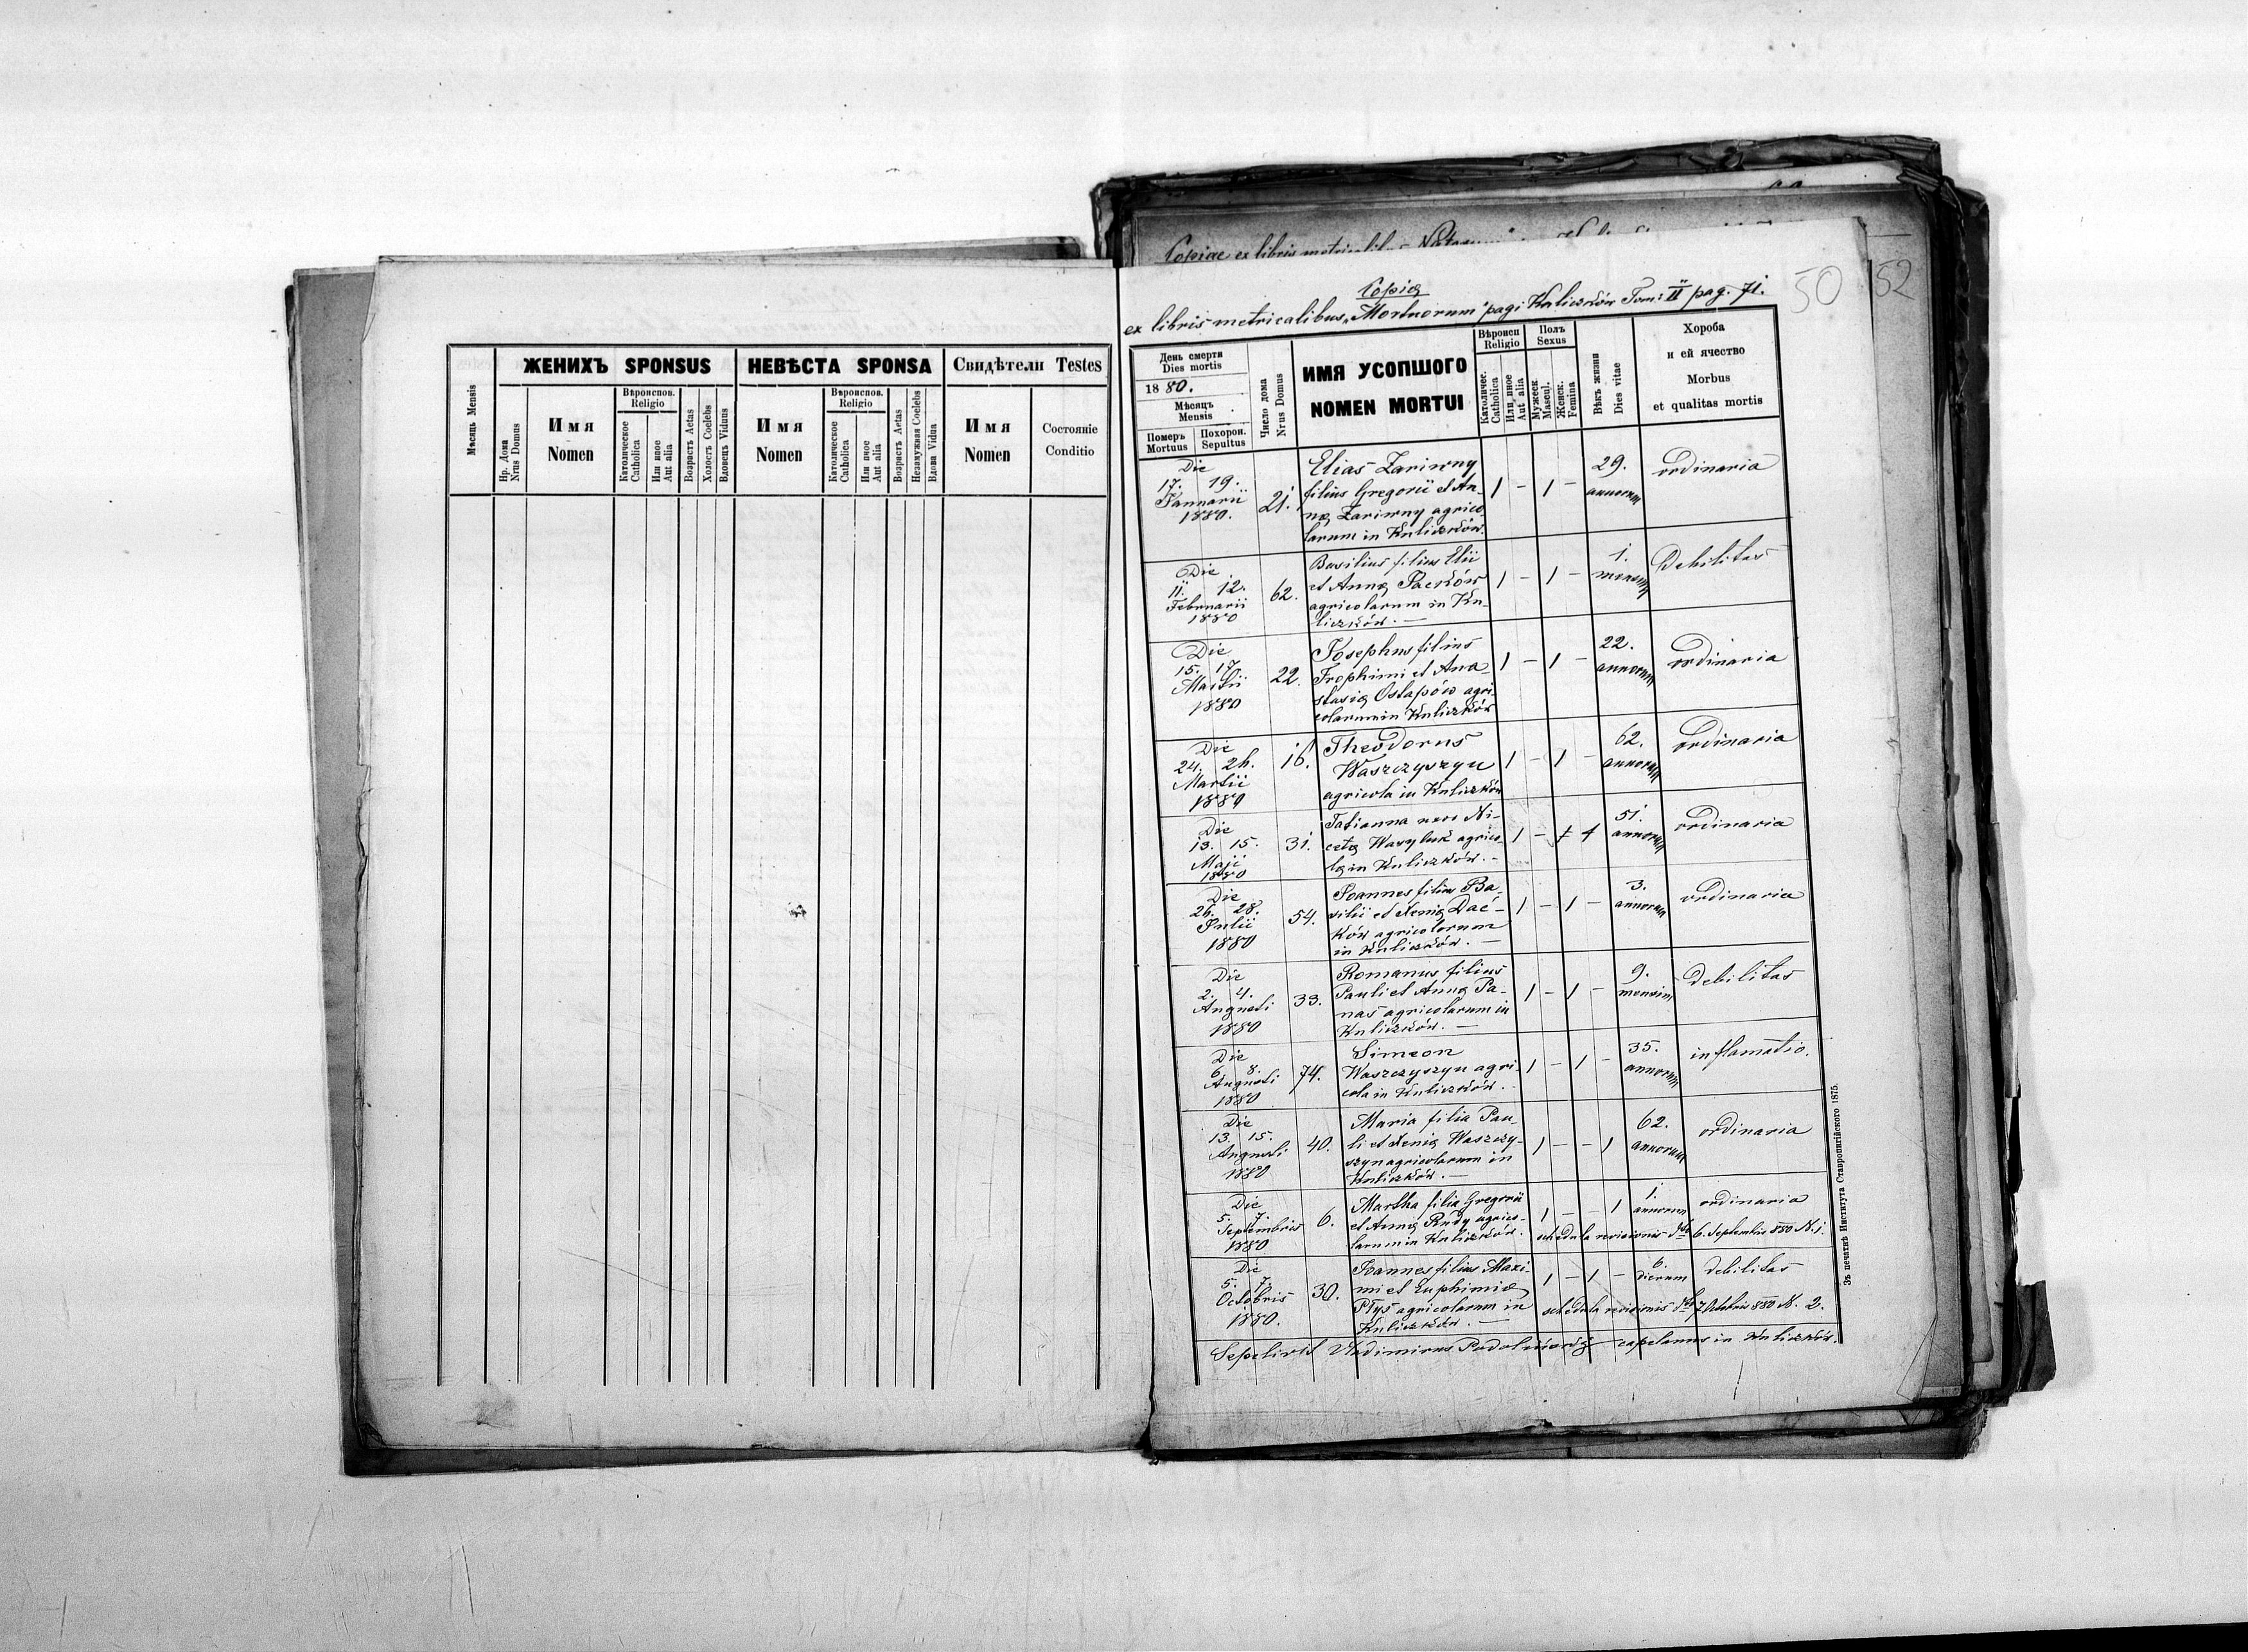 Copiae ex libris metricalibus Natorum
Copia
50
52
ex libris metricalibus „Mortuorum" pagi Kuliczków Tom: II pag. 71.
ЖЕНИХЪ SPONSUS
НЕВѢСТА SPONSA
Свидѣтели Testes
Мѣсяць Mensis
Нр. Дома
Nrus Domus
Имя
Nomen
Вѣроиспов.
Religio
Католическое
Catholica
Или иное
Aut alia
Возрастъ Aetas
Холостъ Coelebs
Вдовецъ Viduus
Имя
Nomen
Вѣроиспов.
Religio
Католическое
Catholica
Или иное
Aut alia
Возрастъ Aetas
Незамужная Coelebs
Вдова Vidua
Имя
Nomen
Состояніе
Conditio
День смерти
Dies mortis
1880.
Мѣсяцъ
Mensis
Померъ
Mortuus
Похорон.
Sepultus
Число дома
Nrus Domus
ИМЯ УСОПШОГО
NOMEN MORTUI
Вѣроисп
Religio
Католичес.
Catholica
Или иное
Aut alia
Полъ
Sexus
Мужеск
Mascul.
Женск.
Femina
Вѣкъ жизни
Dies vitae
Хороба
и ей ячество
Morbus
et qualitas mortis
Die
17. 19.
Januarii
1880.
21.
Elias Zariwny
filius Gregorii et An-
na Zariwny agrico-
larum in Kuliczków.
1 - 1 -
29.
annorum
ordinaria
Die
11. 12.
Februarii
1880
62.
Basilius filius Elii
et Anna Paczków
agricolarum in Ku-
liczków. —
1 - 1 -
1.
mensis
Debilitas
Die
15. 17.
Martii
1880
22.
Josephus filius
Trophimi et Ana-
stasia Ostapów agri-
colarum in Kuliczków
1 - 1 -
22.
annorum
ordinaria
Die
24. 26.
Martii
1880
16.
Theodorus
Waszczyszyn
agricola in Kuliczków
1 - 1 -
62.
annorum
ordinaria
Die
13. 15.
Maji
1880
31.
Tatianna uxor Ni-
ceta Wasyluk agrico-
la in Kuliczków. -
1 - 1
51.
annorum
ordinaria
Die
26. 28.
Julii
1880
54.
Joannes filius Ba-
silii et Xenia Dać-
ków agricolarum
in Kuliczków. —
1 - 1 -
3.
annorum
ordinaria
Die
2. 4.
Augusti
1880
33.
Romanus filius
Pauli et Anna Pa-
nas agricolarum in
Kuliczków. —
1 - 1 -
9.
mensium
debilitas
Die
6. 8.
Augusti
1880
74.
Simeon
Waszczyszyn agri-
cola in Kuliczków. -
1 - 1 -
35.
annorum
inflamatio.
Die
13. 15.
Augusti
1880
40.
Maria filia Pau-
li et Xenia Waszczy-
szyn agricolarum in
Kuliczków. —
1 - - 1
62.
annorum
ordinaria
Die
5. 7.
Septembris
1880
6.
Martha filia Gregorii
et Anna Rudy agrico-
larum in Kuliczków.
1 - - 1
1.
annorum
ordinaria
schedula revisionis dto 6. Septembris 880 N. 1.
Die
5. 7.
Octobris
1880.
30.
Joannes filius Maxi-
mi et Euphimia
Płys agricolarum in
Kuliczków. —
1 - 1 -
6.
dierum
debilitas
schedula revisionis dto 7 Octobris 880 N. 2.
Sepelivit Vladimirus capelanus in Kuliczków.
Зъ печатнѣ Института Ставропигійского 1875.